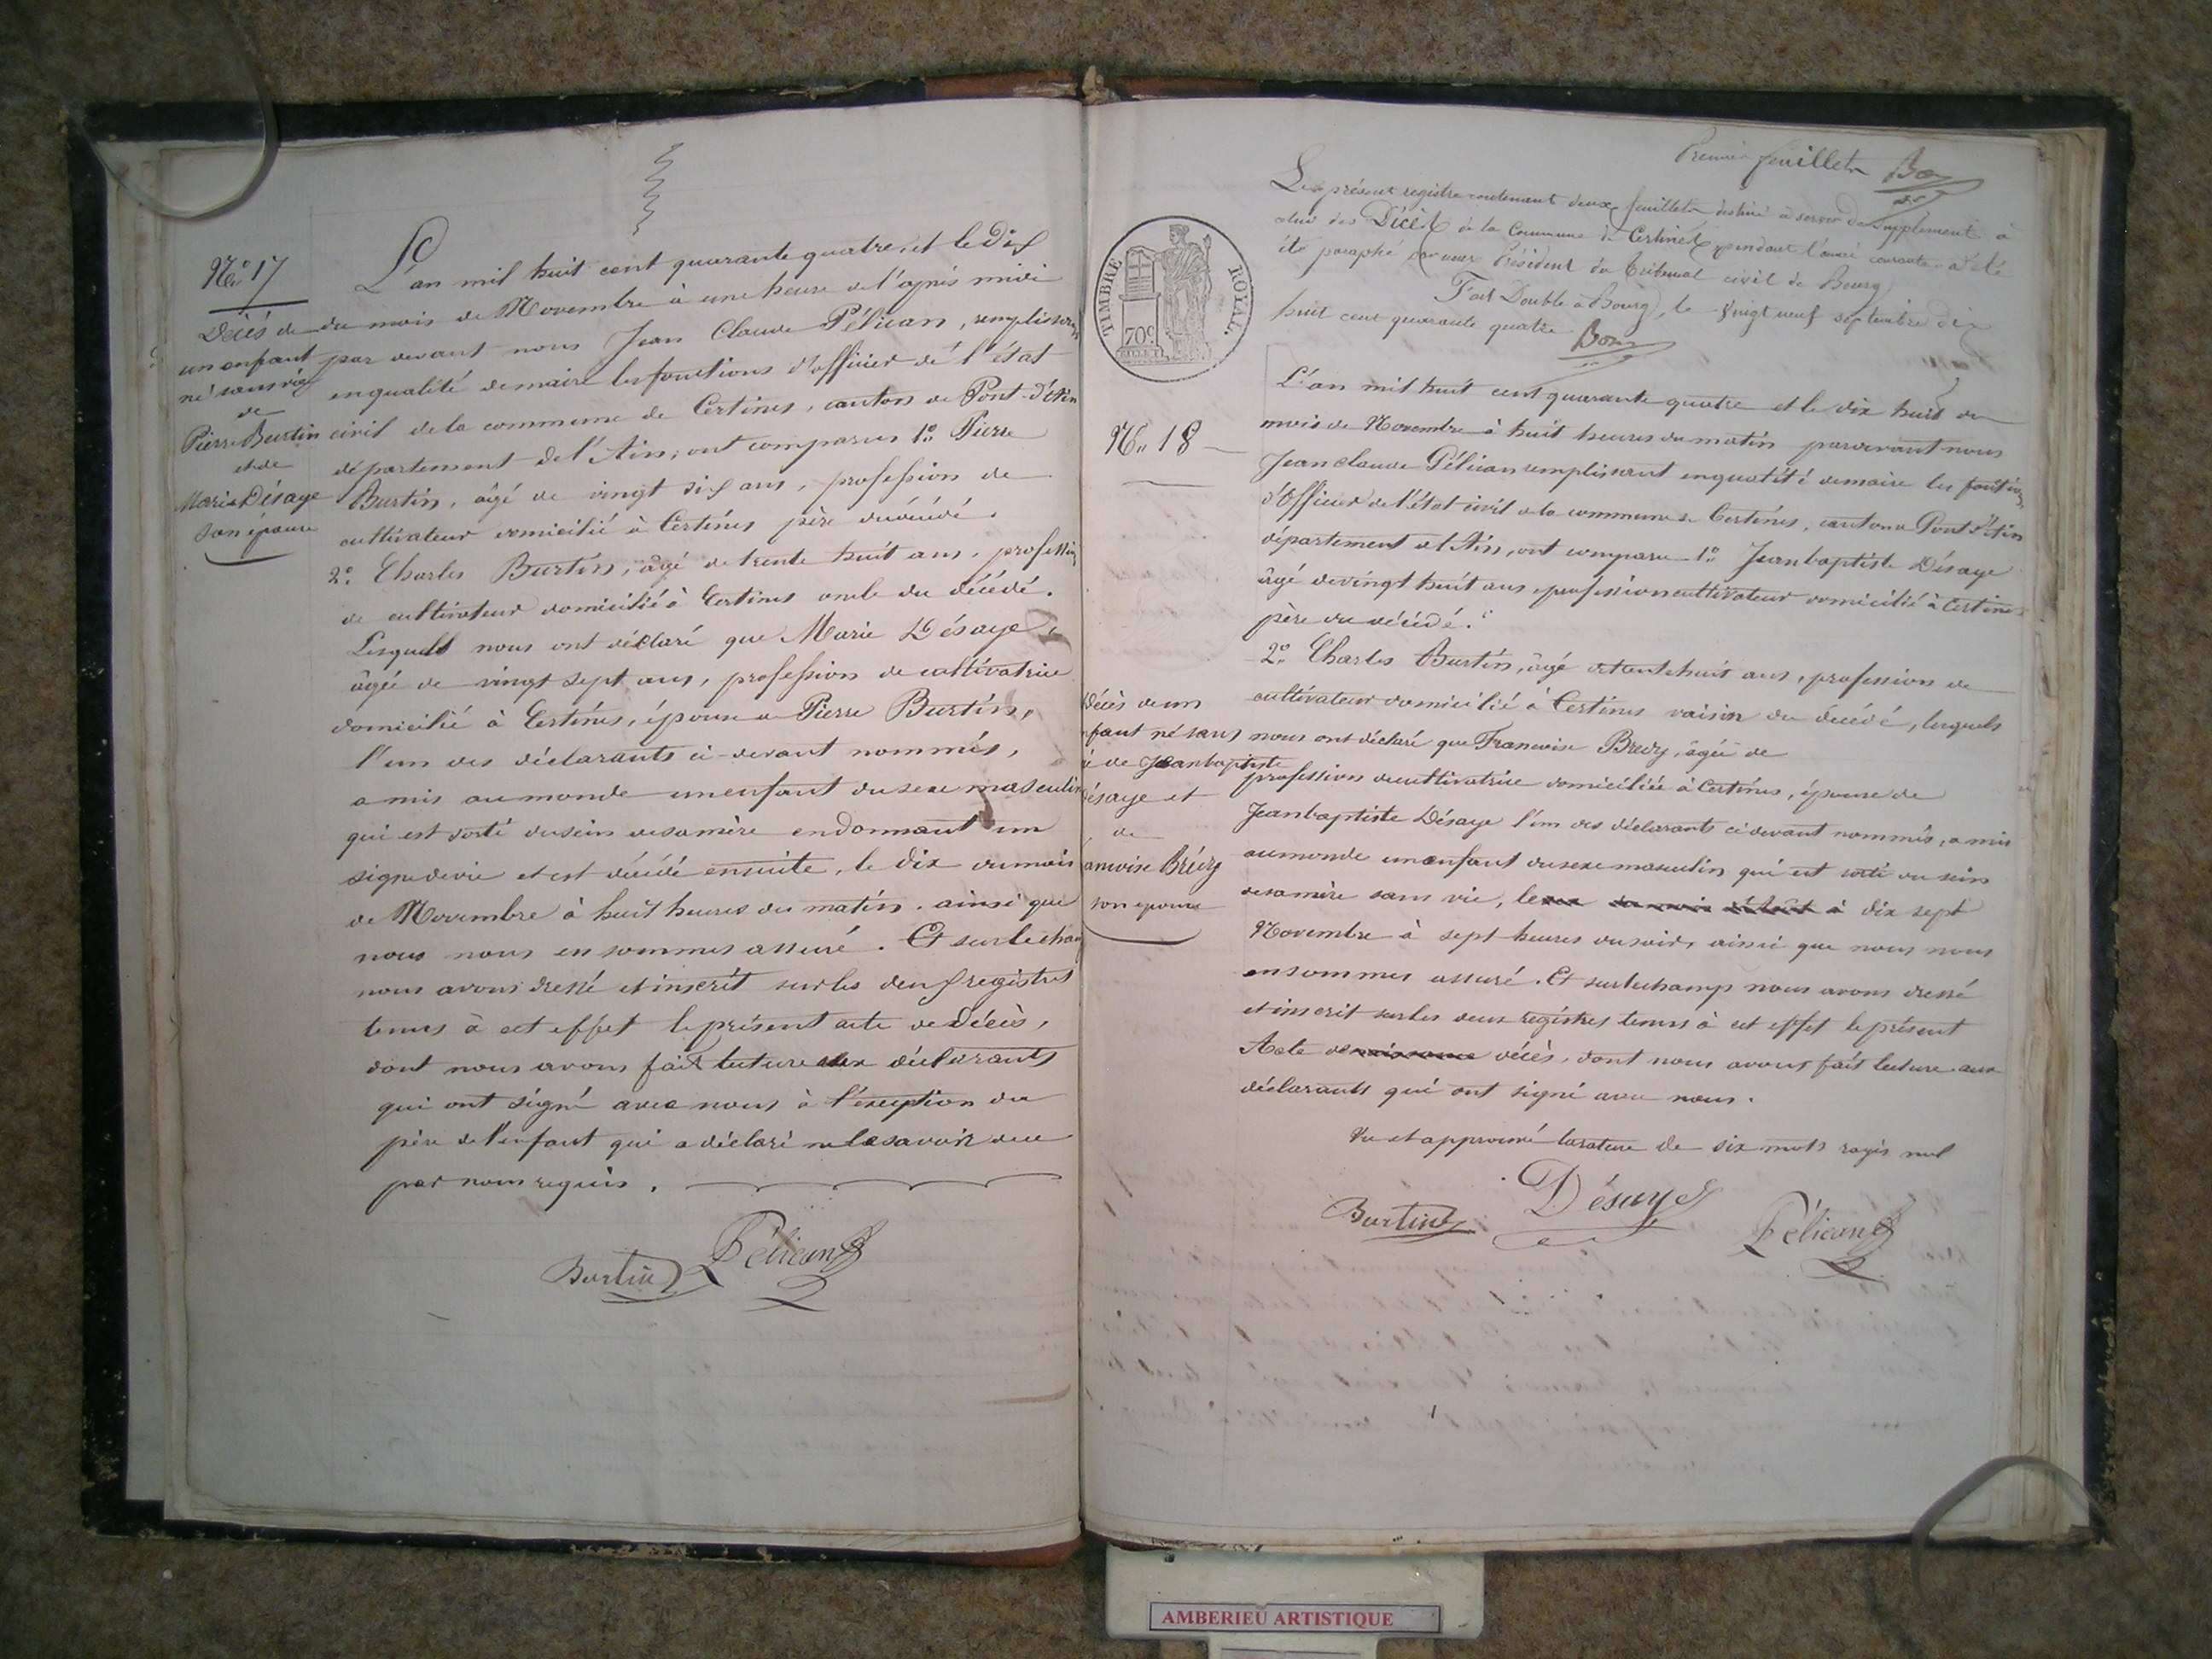 No. 17
Décès de
un enfant
né sans vie
de
Pierre Burtin
et de
Marie Désaye
son épouse
L'an mil huit cent quarante quatre, et le dix
du mois de Novembre à une heure de l'après midi
par devant nous Jean Claude Pélican, remplissant
en qualité de maire les fonctions d'officier de l'état
civil de la commune de Certines, canton de Pont-d'Ain
département de l'Ain, ont comparus 1o. Pierre
Burtin, âgé de vingt six ans, profession de
cultivateur domicilié à Certines père du décédé.
2o. Charles Burtin, âgé de trente huit ans, profession
de cultivateur domicilié à Certines oncle du décédé.
Lesquels nous ont déclaré que Marie Désaye,
âgée de vingt sept ans, profession de cultivatrice
domicilié à Certines, épouse de Pierre Burtin,
l'un des déclarants ci-devant nommés,
a mis au monde un enfant du sexe masculin
qui est sorti du sein de sa mère en donnant un
signe de vie et est décédé ensuite, le dix du mois
de Novembre à huit heures du matin. ainsi que
nous nous en sommes assuré. Et sur le champ
nous avons dressé et inscrit sur les deux registres
tenus à cet effet le présent acte de Décès,
dont nous avons fait lecture aux déclarants
qui ont signé avec nous à l'exception du
père de l'enfant qui a déclaré ne le savoir de ce
par nous requis.
Burtin Pélican
Premier feuillet Bon
Le présent registre contenant deux feuillets destiné à servir de supplément à
celui des Décès de la Commune de Certines pendant l'année courante a été
été paraphé par nous Président du Tribunal civil de Bourg
Fait Double à Bourg, le vingt neuf septembre dix
huit cent quarante quatre
TIMBRE ROYAL.
70c.
No. 18
Décès d'un
nfant né sans
ie de Jeanbaptiste
Désaye et
de
ancoise Brédy
son épouse
L'an mil huit cent quarante quatre et le dix huit du
mois de Novembre à huit heures du matin par devant nous
Jean claude Pélican remplissant en qualité de maire les fonctions
d'Officier de l'état civil de la commune de Certines, canton de Pont d'Ain
département de l'Ain, ont comparu 1o. Jeanbaptiste Désaye
âgé de vingt huit ans profession cultivateur domicilié à Certines
père du décédé.
2o. Charles Burtin, âgé de trente huit ans, profession de
cultivateur domicilié à Certines voisin du décédé, lesquels
nous ont déclaré que Francoise Bredy, âgée de
profession de cultivatrice domiciliée à Certines, épouse de
Jeanbaptiste Désaye l'un des déclarants ci devant nommés, a mis
au monde un enfant du sexe masculin qui est sorti du sein
de sa mère sans vie, le dix sept
Novembre à sept heures du soir, ainsi que nous nous
en sommes assuré. Et sur le champ nous avons dressé
et inscrit sur les deux registres tenus à cet effet le présent
Acte de naissance décès, dont nous avons fait lecture aux
déclarants qui ont signé avec nous.
Vu et approuvé la rature de six mots rayés nul
Burtin Désaye Pélican
AMBERIEU ARTISTIQUE